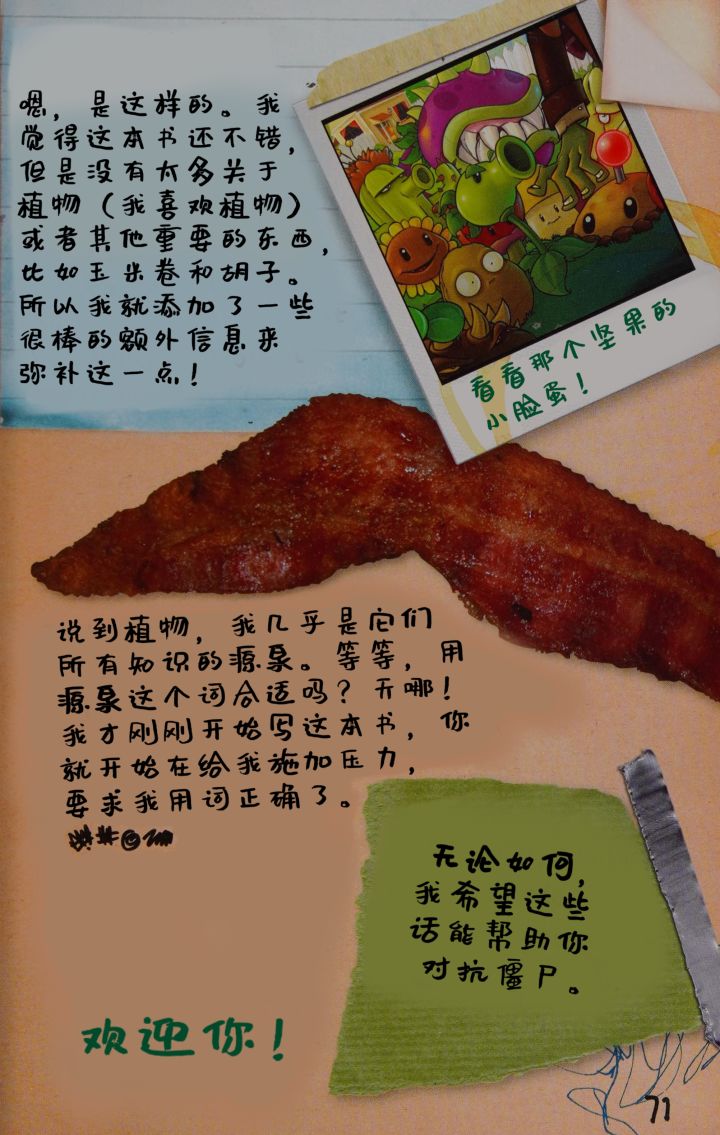 嗯，是这样的。我
觉得这本书还不错，
但是没有太多关于
植物（我喜欢植物）
或者其他重要的东西，
比如玉米卷和胡子。
所以我就添加了一些
很棒的额外信息来
弥补这一点！
看看那个坚果的
小脸蛋！
说到植物，我几乎是它们
所有知识的源泉。等等，用
源泉这个词合适吗？天哪！
我才刚刚开始写这本书，你
就开始在给我施加压力，
要求我用词正确了。
无论如何，
我希望这些
话能帮助你
对抗僵尸。
欢迎你！
71